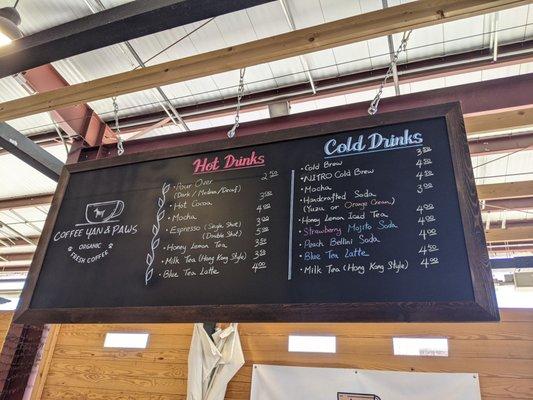 COFFEE YAN & PAWS
ORGANIC
FRESH COFFEE
Hot Drinks
• Pour Over
(Dark / Medium / Decaf)
• Hot Cocoa
• Mocha
• Espresso (Single Shot)
(Double Shot)
• Honey Lemon Tea
• Milk Tea (Hong Kong Style)
• Blue Tea Latte
Cold Drinks
• Cold Brew
• NITRO Cold Brew
• Mocha
• Handcrafted Soda
(Yuzu or Orange Cream)
• Honey Lemon Iced Tea
• Strawberry Mojito Soda
• Peach Bellini Soda
• Blue Tea Latte
• Milk Tea (Hong Kong Style)